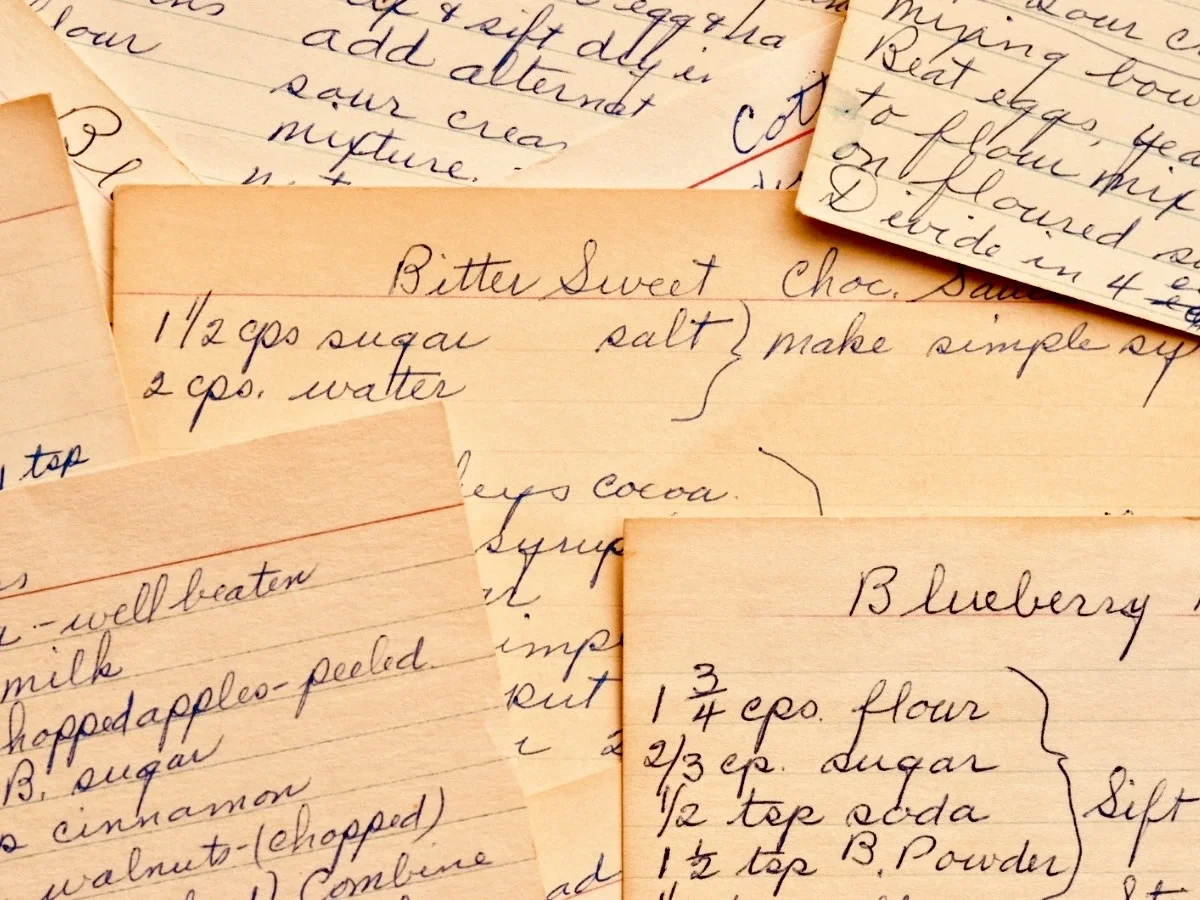 flour
& sift dry in
egg &
add alternat
sour crea
mixture.
Cot
sour c
mixing bow
Beat eggs, yea
to flour mix
on floured su
Divide in 4
Bl
1 tsp
Bitter Sweet Choc. Sauc
1 1/2 cps sugar salt } make simple sy
2 cps. water
leys cocoa.
syrup
ar
imp
put
2
ad
- well beaten
milk
hopped apples - peeled
B. sugar
s cinnamon
walnuts - (chopped)
Combine
Blueberry
1 3/4 cps. flour
2/3 cp. sugar
1/2 tsp soda
1 1/2 tsp B. Powder
} Sift